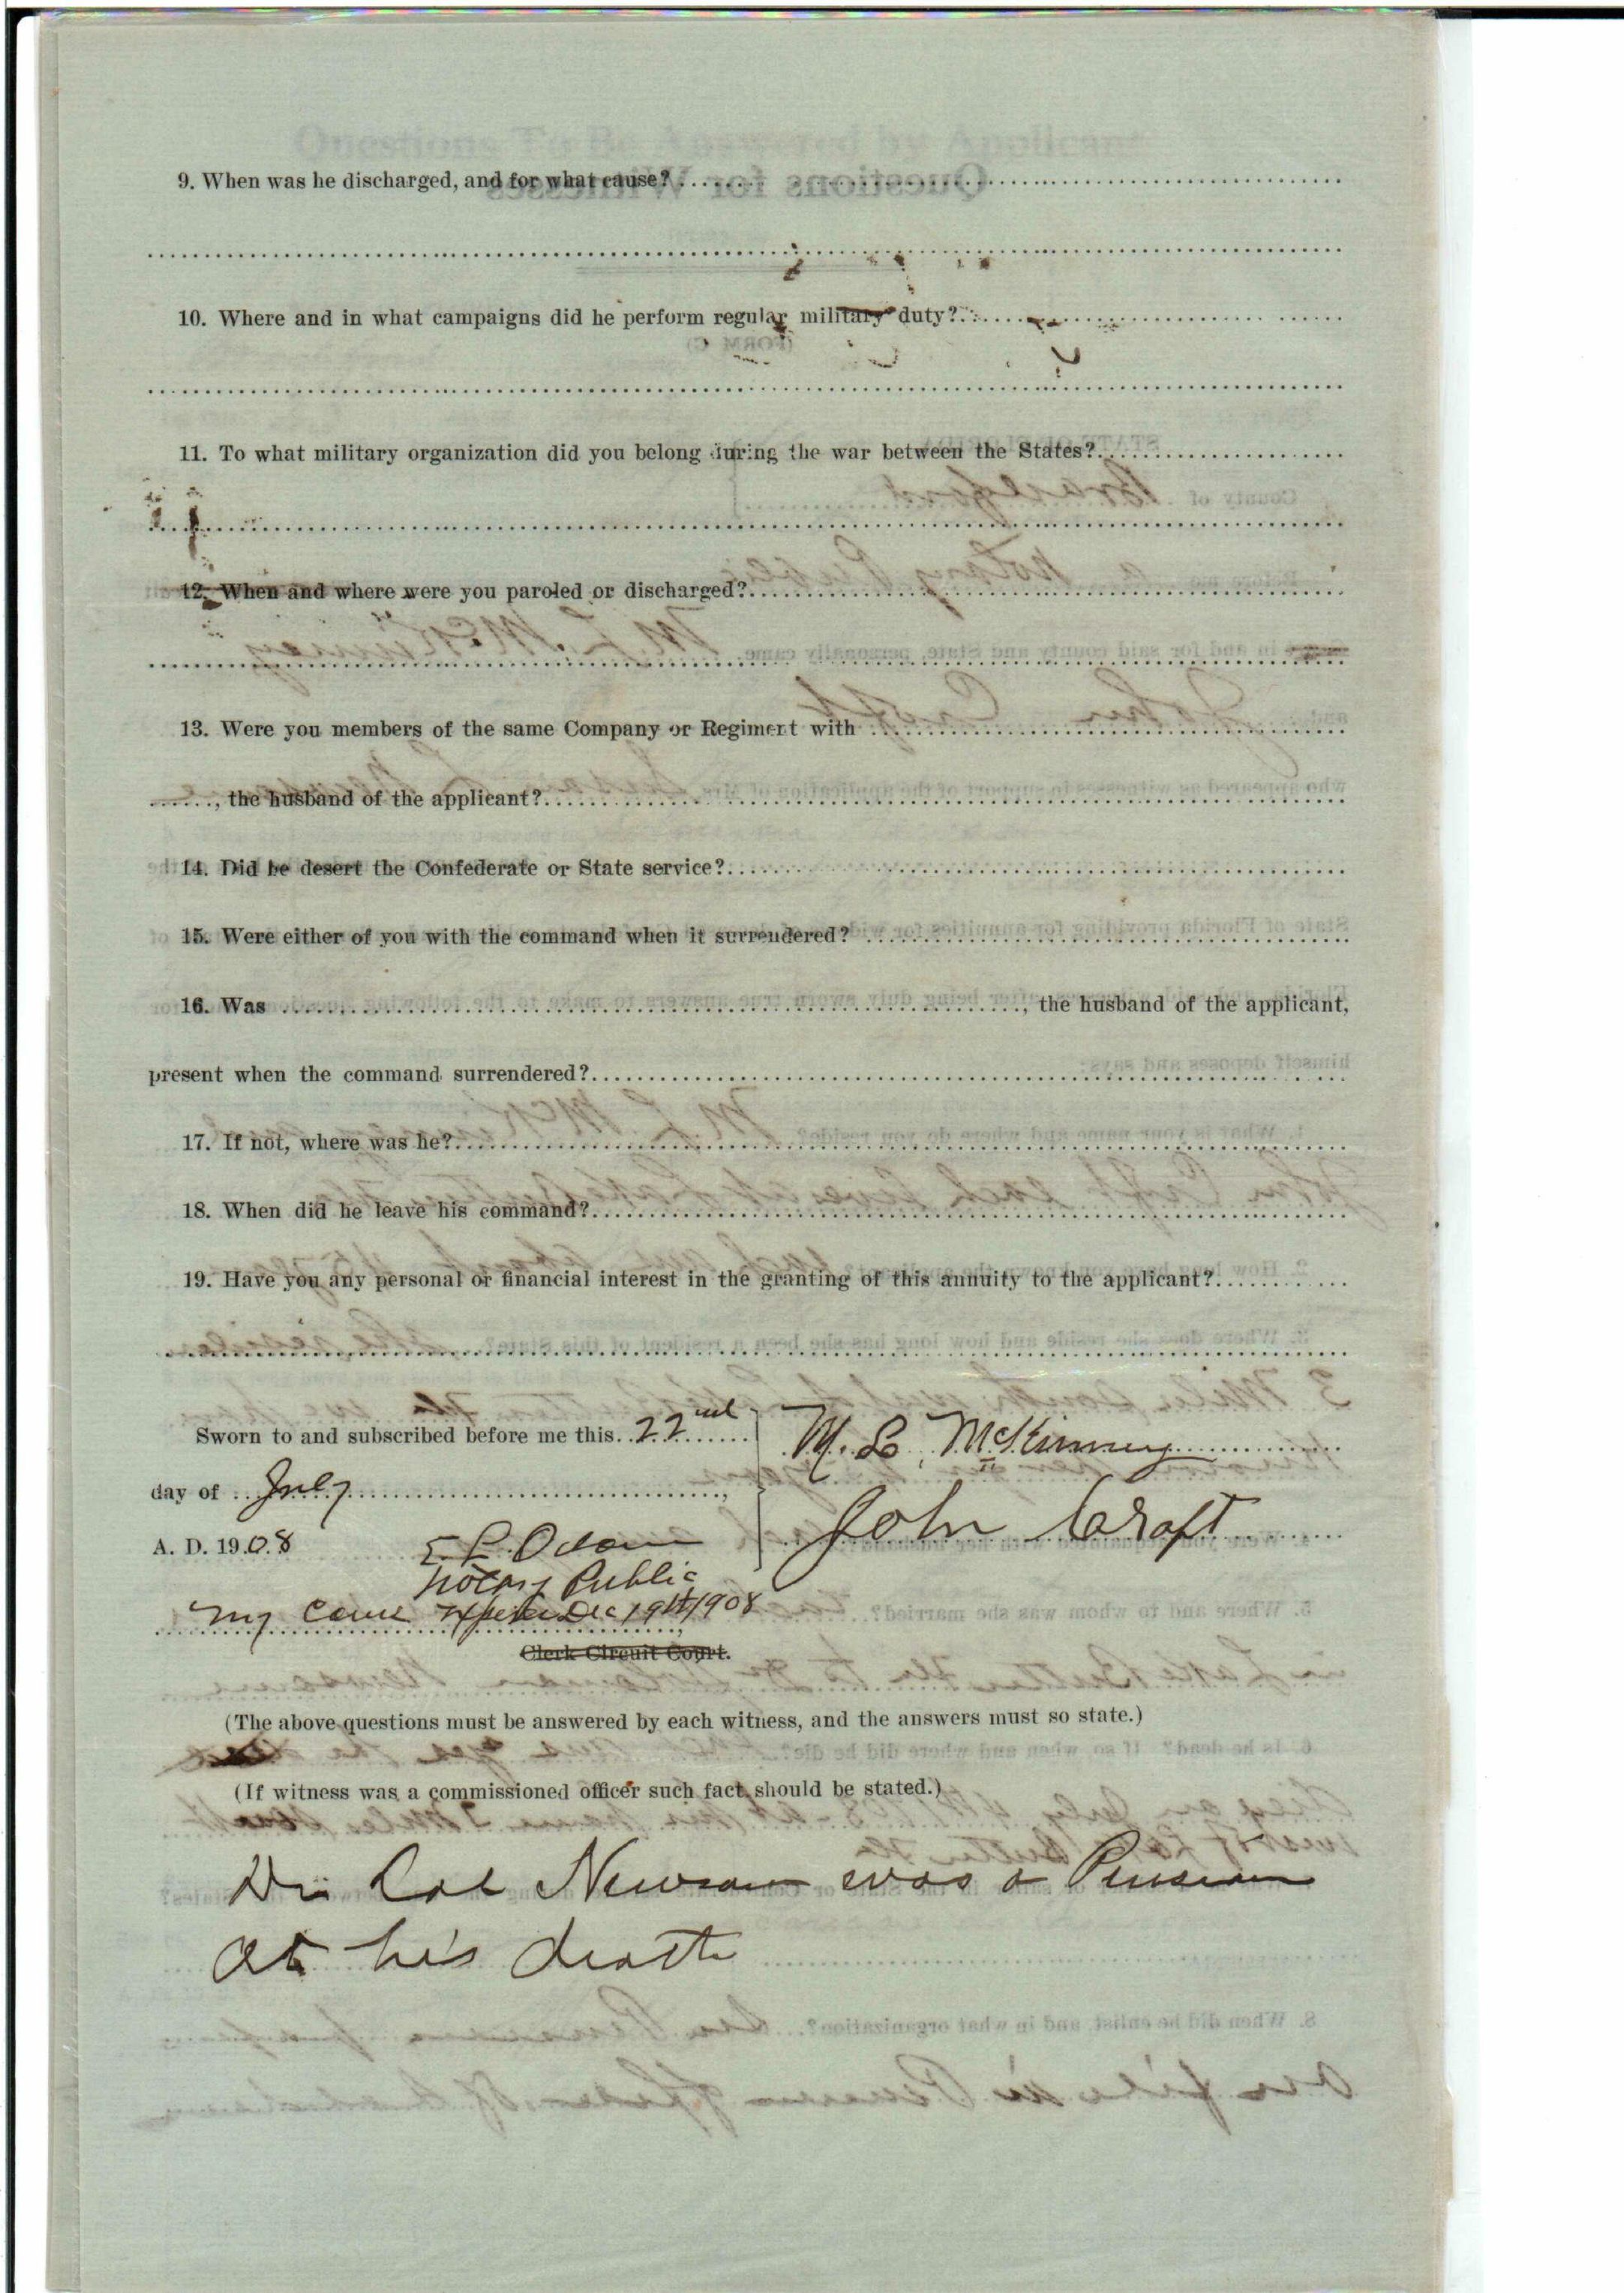 9. When was he discharged, and for what cause?
10. Where and in what campaigns did he perform regular military duty?
11. To what military organization did you belong during the war between the States?
12. When and where were you paroled or discharged?
13. Were you members of the same Company or Regiment with
, the husband of the applicant?
14. Did he desert the Confederate or State service?
15. Were either of you with the command when it surrendered?
16. Was , the husband of the applicant,
present when the command surrendered?
17. If not, where was he?
18. When did he leave his command?
19. Have you any personal or financial interest in the granting of this annuity to the applicant?
Sworn to and subscribed before me this 22nd M. L. McKinney
day of July
A. D. 1908 John Croft
E. L. Odom
Notary Public
My Com Dec 19th 1908
Clerk Circuit Court.
(The above questions must be answered by each witness, and the answers must so state.)
(If witness was a commissioned officer such fact should be stated.)
Newsom was a
at his death